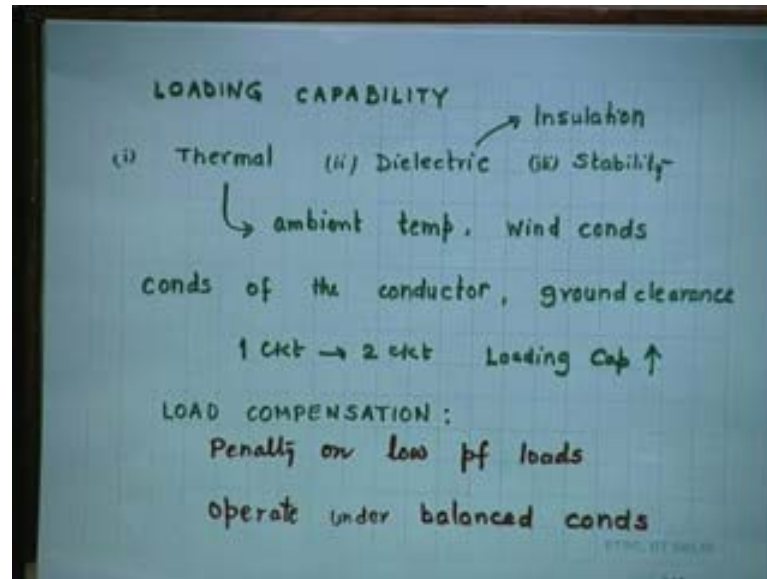 LOADING CAPABILITY
Insulation
(i) Thermal (ii) Dielectric (iii) Stability
ambient temp. Wind conds
conds of the conductor, ground clearance
1 ckt → 2 ckt Loading Cap ↑
LOAD COMPENSATION :
Penalty on low pf loads
operate under balanced conds